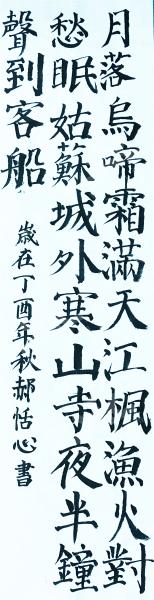 月落烏啼霜滿天江楓漁火對
愁眠姑蘇城外寒山寺夜半鐘
聲到客船
歲在丁酉年秋郝恬心書